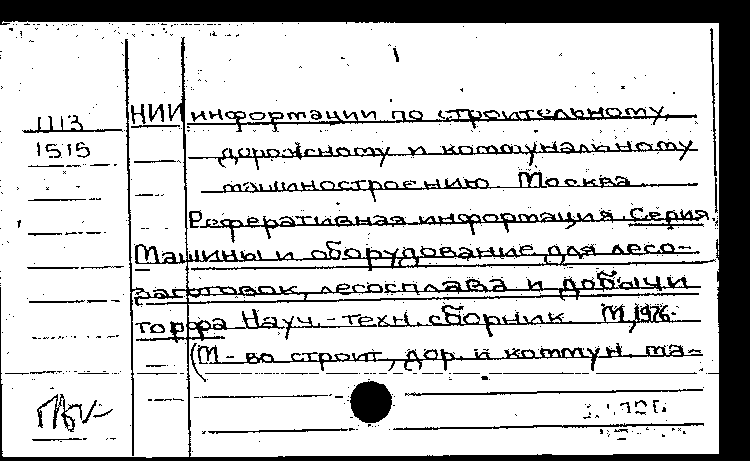 1
П13
1515
НИИ информации по строительному,
дорожному и коммунальному
машиностроению. Москва
Реферативная информация. Серия
Машины и оборудование для лесо-
заготовок, лесосплава и добычи
торфа Науч.-техн. сборник. М, 1976-
(М-во строит, дор. и коммун. ма-